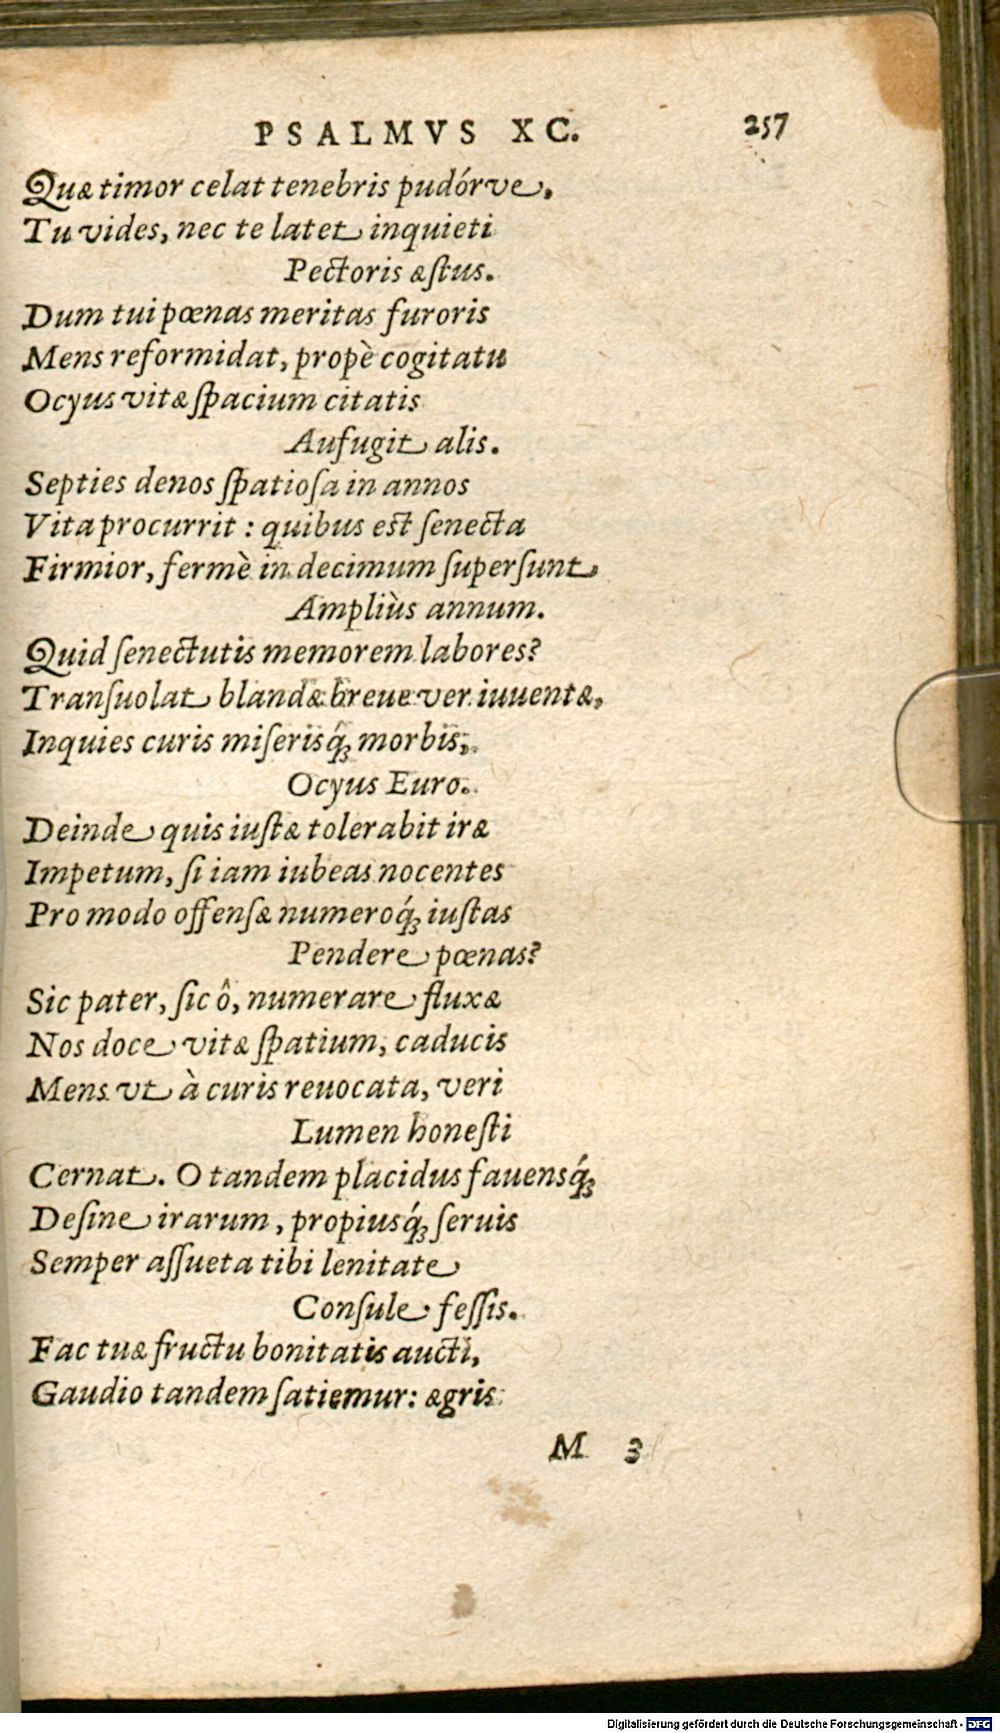 PSALMVS XC. 257
Quæ timor celat tenebris pudórve,
Tu vides, nec te latet inquieti
Pectoris æſtus.
Dum tui pœnas meritas furoris
Mens reformidat, propè cogitatu
Ocyus vitæ ſpacium citatis
Aufugit alis.
Septies denos ſpatioſa in annos
Vita procurrit : quibus eſt ſenecta
Firmior, fermè in decimum ſuperſunt
Ampliùs annum.
Quid ſenectutis memorem labores?
Tranſuolat blandæ breue ver iuuentæ,
Inquies curis miſerisq́ꝫ morbis,
Ocyus Euro.
Deinde quis iuſtæ tolerabit iræ
Impetum, ſi iam iubeas nocentes
Pro modo offenſæ numeroq́ꝫ iuſtas
Pendere pœnas?
Sic pater, ſic ô, numerare fluxæ
Nos doce vitæ ſpatium, caducis
Mens vt à curis reuocata, veri
Lumen honeſti
Cernat. O tandem placidus fauensq́ꝫ
Deſine irarum, propiusq́ꝫ ſeruis
Semper aſſueta tibi lenitate
Conſule feſſis.
Fac tuæ fructu bonitatis aucti,
Gaudio tandem ſatiemur: ægris
M 3
Digitalisierung gefördert durch die Deutsche Forschungsgemeinschaft - DFG